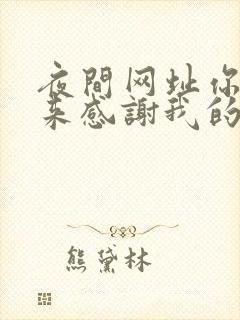 夜間网址你
来感謝我的
熊黛林